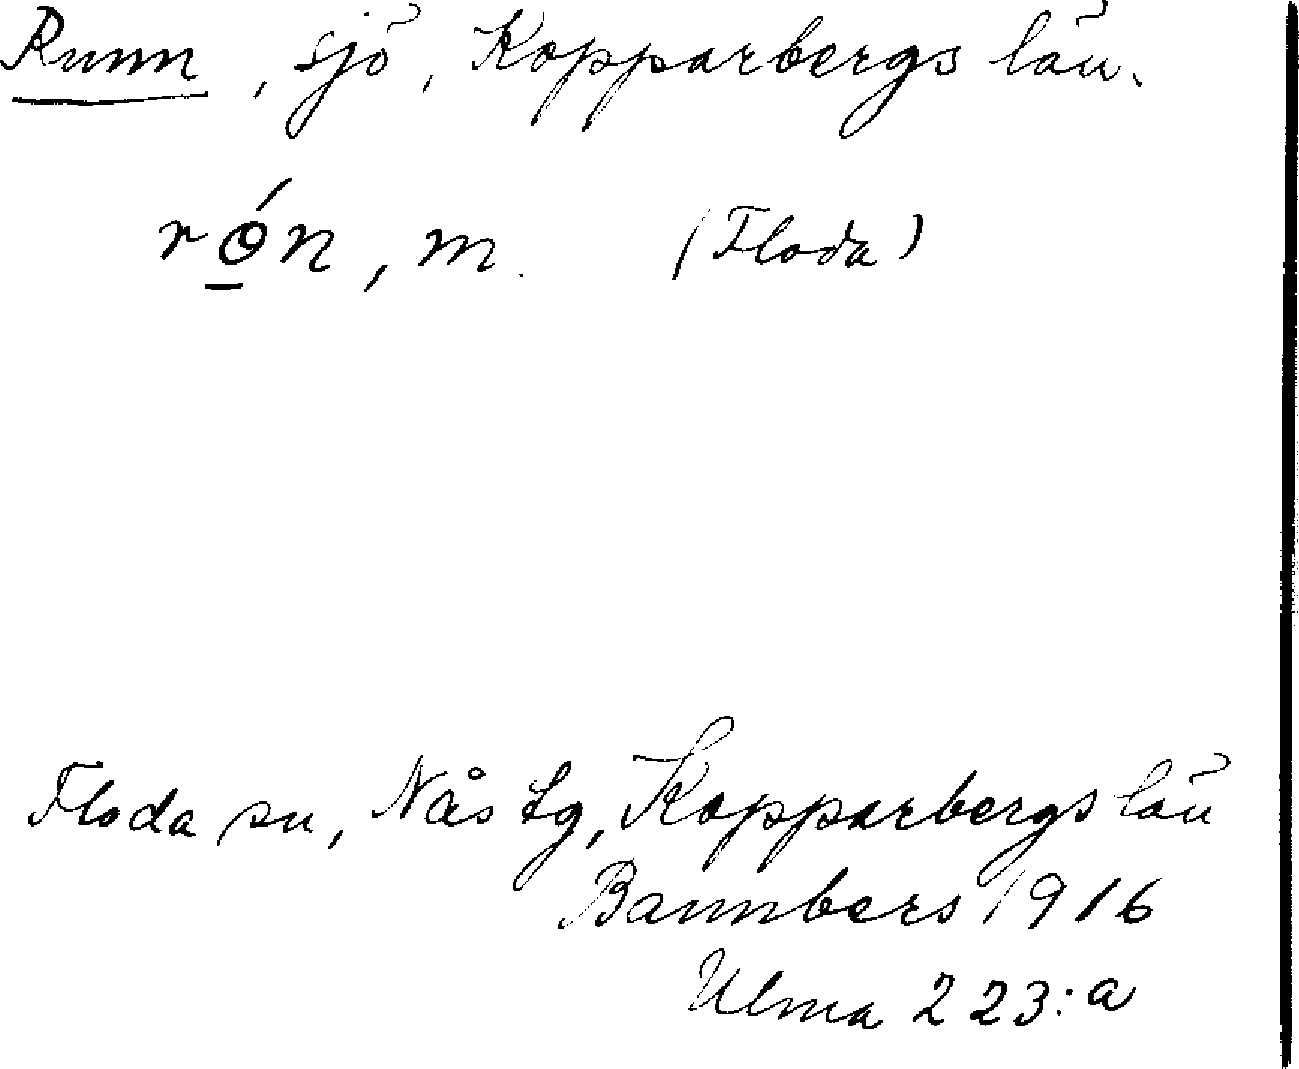 Runn, sjö, Kopparbergs län.
rö́n, m. (Floda)
Floda sn, Nås tg, Kopparbergs län
Bannbers 1916
Ulma 223:a